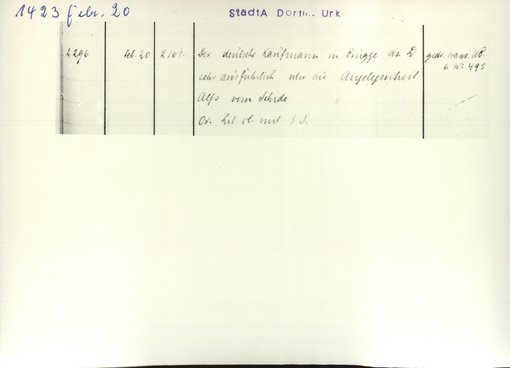 1423 Febr. 20
StadtA Dortm. Urk
2296 Feb. 20 2161 Der deutsche Kaufmann in Brügge an D gedr. Hans. UB.
sehr ausführlich über die Angelegenheit 6 Nr. 495
Alfs vom Schide
Or. lit. cl. mit S. S.